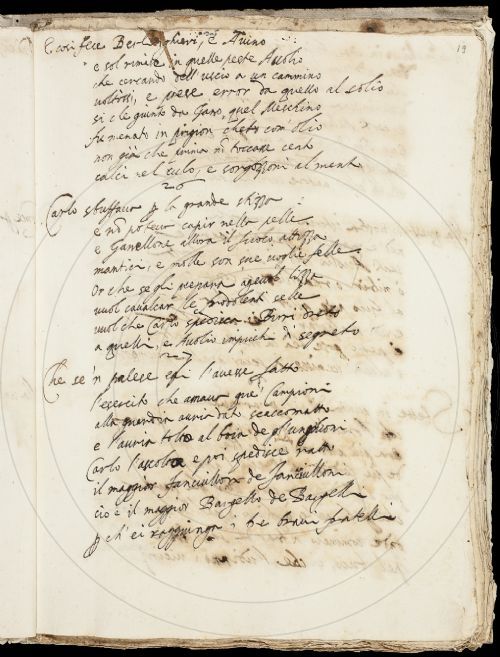 19
E così fece Berlinghieri, e Avino
e sol rimase in quelle peste Avolio
che cercando dell'uscio a un cammino
voltossi, e prese error da quello al solio
sì che giunto da Gano, quel Meschino
fu menato in prigion cheto com olio
non già che prima nō toccasse cento
calci nel culo, e sorgozzoni al ment
26
Carlo sbuffava p la grande stizza
e nō poteva capir nella pelle
e Ganellone allora il fuoco attizza
mantica, e molle son sue voglie felle
Or che se gli menava
vuol cavalcar le selle
vuol che Carlo spedisca Birri dreto
a quelli, e Avolio impicchi di segreto
27
Che se 'n palese egli l'avesse fatto
l'esercito che amava que' Campioni
alla guardia avria dato scaccomatto
e l'avria tolto al boia de gl'unghioni
Carlo l'ascolta e poi spedisce ratto
il maggior fanciullon de fanciulloni
cio è il maggior Bargello de Bargelli
p ch'ei raggiunga i tre bravi fratelli